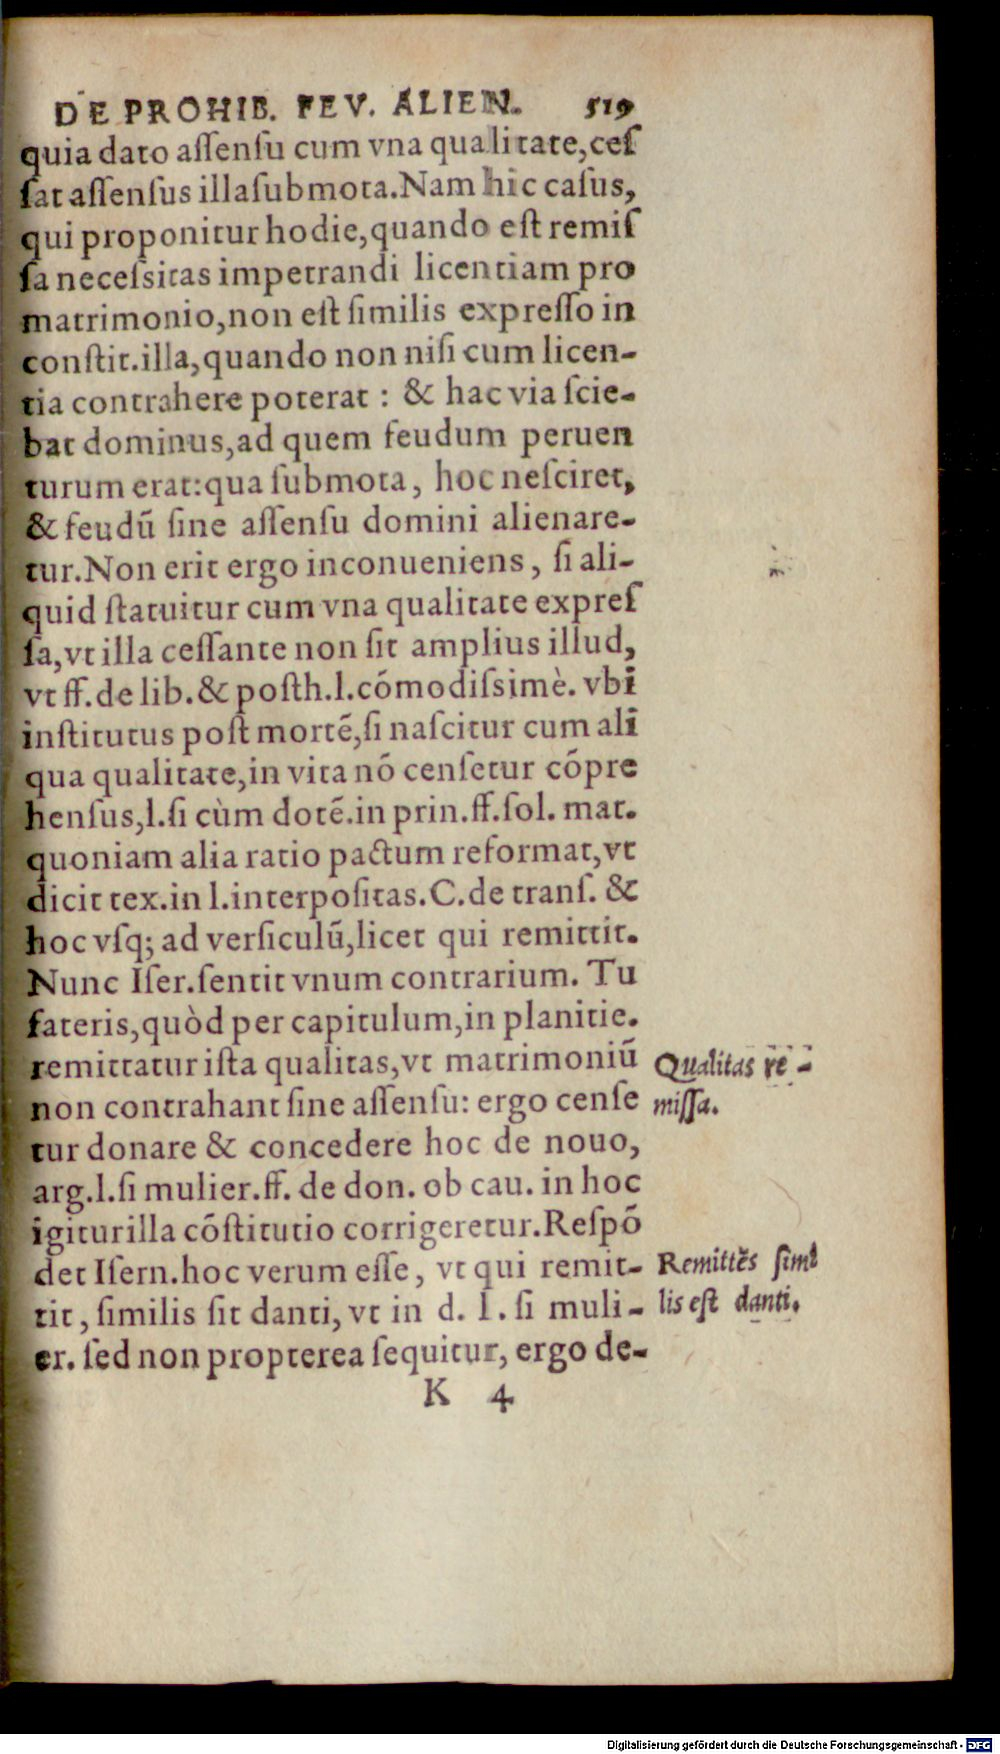 DE PROHIB. FEV. ALIEN. 519
quia dato aſſenſu cum vna qualitate,ceſ
ſat aſſenſus illa ſubmota.Nam hic caſus,
qui proponitur hodie,quando eſt remiſ
ſa neceſsitas impetrandi licentiam pro
matrimonio,non eſt ſimilis expreſſo in
conſtit.illa,quando non niſi cum licen-
tia contrahere poterat : & hac via ſcie-
bat dominus,ad quem feudum peruen
turum erat:qua ſubmota, hoc neſciret,
& feudū ſine aſſenſu domini alienare-
tur.Non erit ergo inconueniens, ſi ali-
quid ſtatuitur cum vna qualitate expreſ
ſa,vt illa ceſſante non ſit amplius illud,
vt ff.de lib.& poſth.l.cōmodiſsimè. vbi
inſtitutus poſt mortē,ſi naſcitur cum ali
qua qualitate,in vita nō cenſetur cōpre
henſus,l.ſi cùm dotē.in prin.ff.ſol. mat.
quoniam alia ratio pactum reformat,vt
dicit tex.in l.interpoſitas.C.de tranſ. &
hoc vſq; ad verſiculū,licet qui remittit.
Nunc Iſer.ſentit vnum contrarium. Tu
fateris,quòd per capitulum,in planitie.
remittatur iſta qualitas,vt matrimoniū
non contrahant ſine aſſenſu: ergo cenſe
tur donare & concedere hoc de nouo,
arg.l.ſi mulier.ff. de don. ob cau. in hoc
igitur illa cōſtitutio corrigeretur.Reſpō
det Iſern.hoc verum eſſe, vt qui remit-
tit, ſimilis ſit danti, vt in d. l. ſi muli-
er. ſed non propterea ſequitur, ergo de-
K 4
Qualitas re-
miſſa.
Remittēs ſimi
lis eſt danti.
Digitalisierung gefördert durch die Deutsche Forschungsgemeinschaft - DFG